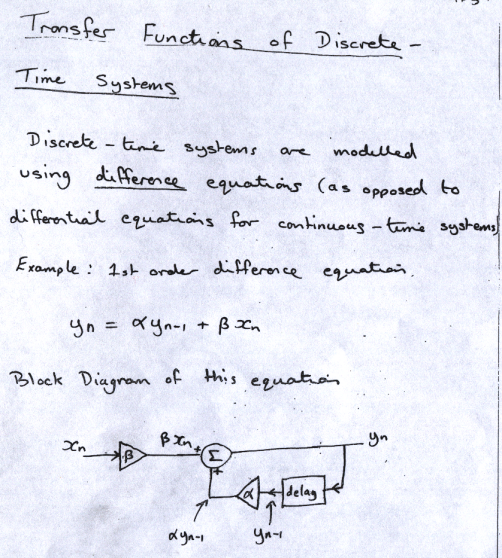 Transfer Functions of Discrete-
Time Systems
Discrete-time systems are modelled
using difference equations (as opposed to
differential equations for continuous-time systems)
Example: 1st order difference equation.
yn = αyn-1 + βxn
Block Diagram of this equation
xn β βxn + Σ yn
+ α delay
αyn-1 yn-1